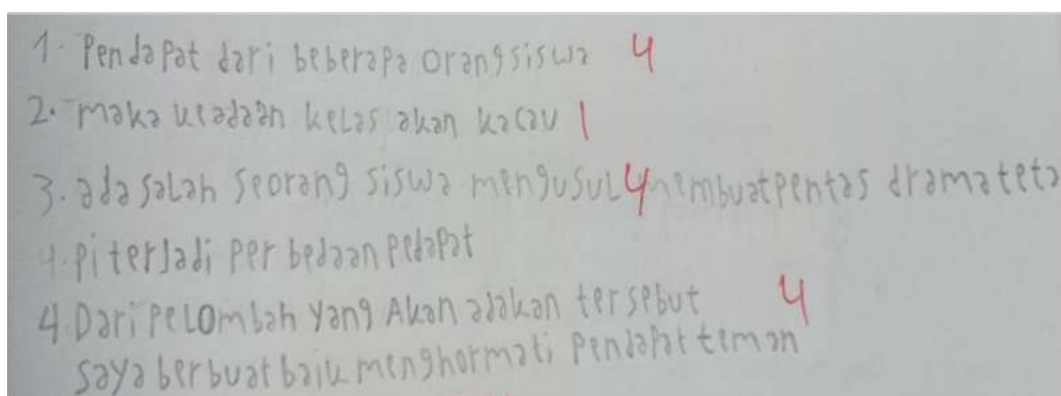 1. Pendapat dari beberapa orang siswa 4
2. maka keadaan kelas akan kacau 1
3. ada salah seorang siswa mengusul 4 membuat pentas drama teta
4. Pi terjadi per bedaan pedapat
4. Dari pelombah yang Akan adakan tersebut 4
saya berbuat baik menghormati pendapat teman